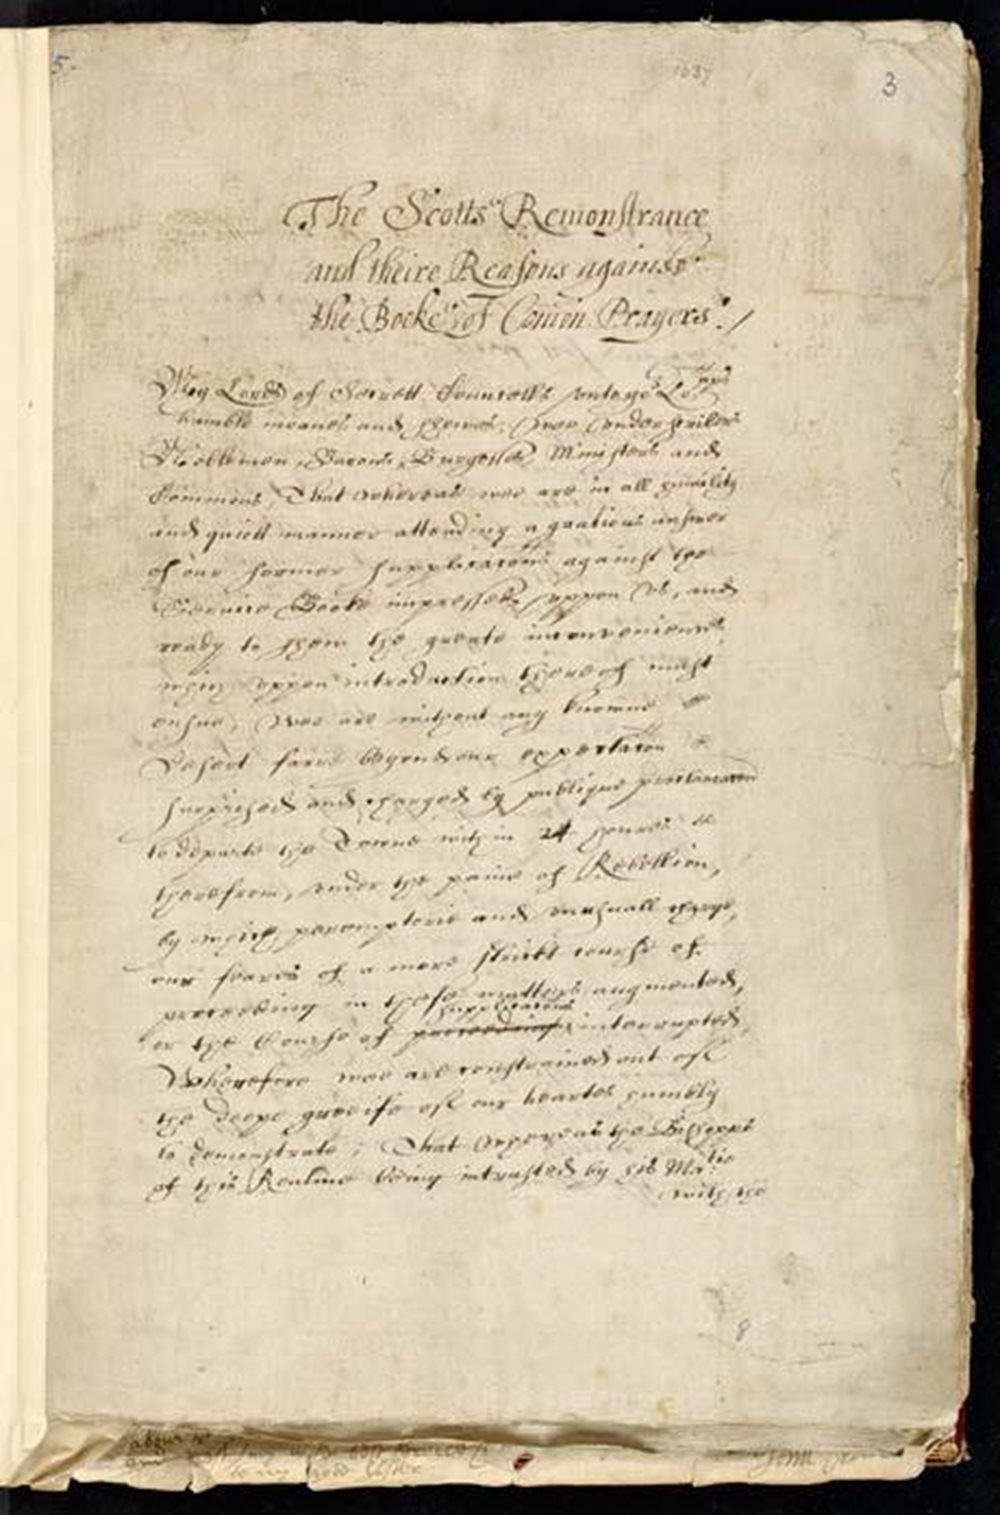 5.
1637
3
The Scotts Remonstrance
and theire Reasons against
the Booke of Com̃on Prayers./
My Lords of Secrett Councell, unto yor Lopps
humble meanes and shewes, Wee Underscriters
Noblemen, Barons, Burgesses, Ministers and
Commons, That whereas wee are in all humility
and quiett manner attending a gratious answer
of our former supplicacons against the
Service Booke impressed uppon us, and
ready to shew the greate inconveniences
which uppon introduction thereof must
ensue, Wee are without any knowne
desert farre beyond our expectacon
surprised and charged by publique proclamacon
to departe the Towne within 24 houres
therefrom, under the paine of Rebellion,
by which peremptorie and unusuall charge,
our feares of a more strickt course of
proceeding in these matters augmented,
supplicacons
or the Course of proceedings interrupted,
Wherefore wee are constrained out of
the deepe greeife of our heartes humbly
to remonstrate; That whereas the Bishopps
of this Realme being intrusted by his Matie
with the
8
to my good
John